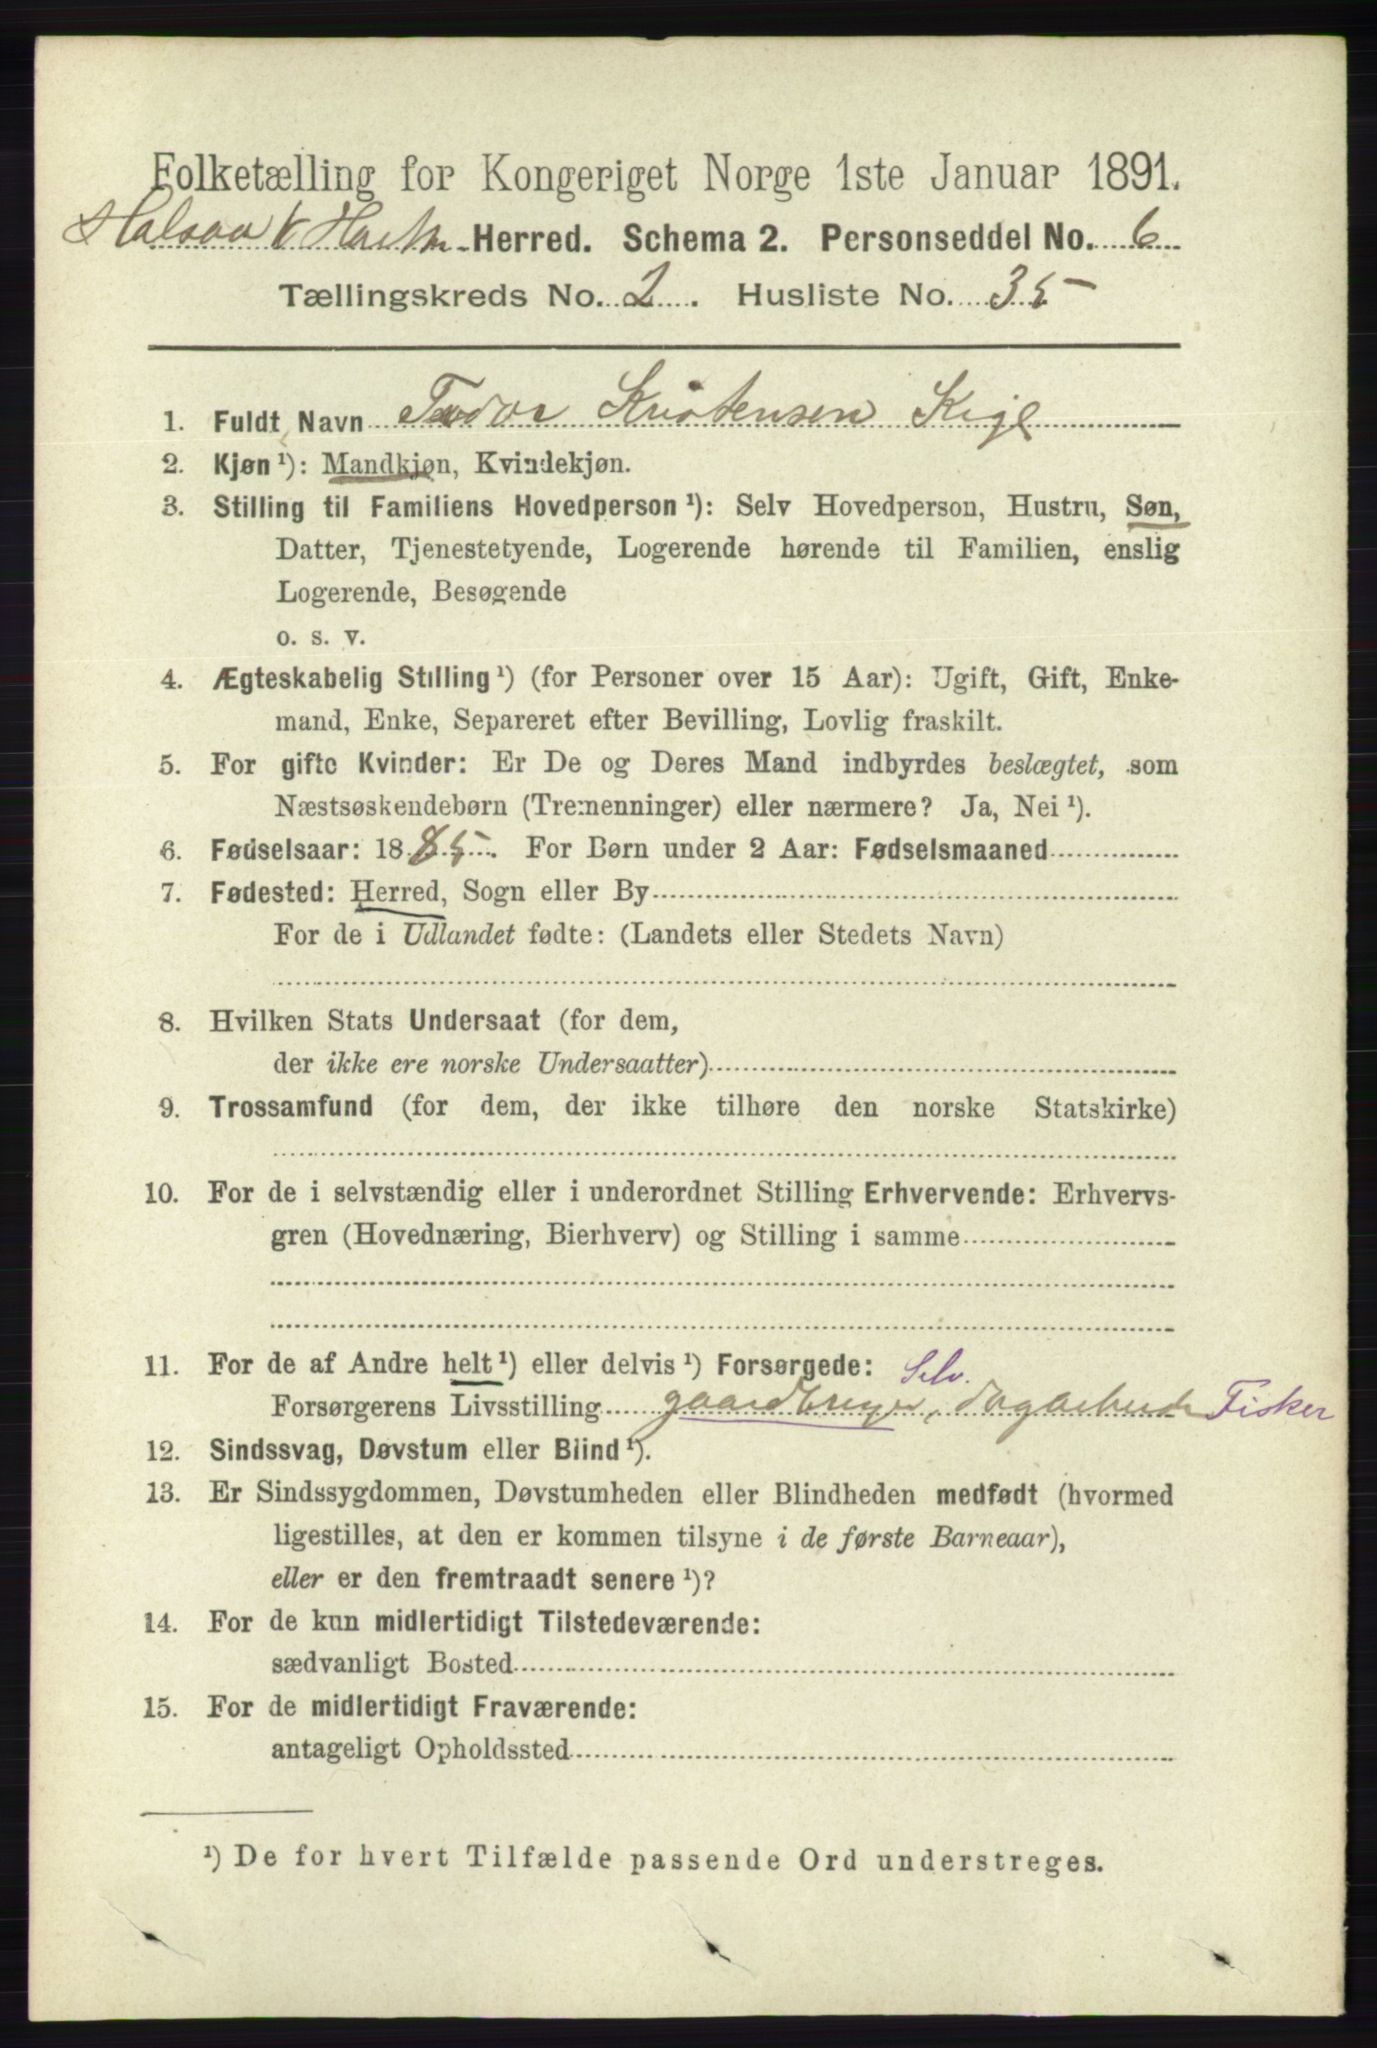 Folketælling for Kongeriget Norge 1ste Januar 1891.
Halsaa & Hark. Herred. Schema 2. Personseddel No. 6
Tællingskreds No. 2. Husliste No. 35
1. Fuldt Navn Todor Kristensen Kige
2. Kjøn ¹): Mandkjøn, Kvindekjøn.
3. Stilling til Familiens Hovedperson ¹): Selv Hovedperson, Hustru, Søn,
Datter, Tjenestetyende, Logerende hørende til Familien, enslig
Logerende, Besøgende
o. s. v.
4. Ægteskabelig Stilling ¹) (for Personer over 15 Aar): Ugift, Gift, Enke-
mand, Enke, Separeret efter Bevilling, Lovlig fraskilt.
5. For gifte Kvinder: Er De og Deres Mand indbyrdes beslægtet, som
Næstsøskendebørn (Tremenninger) eller nærmere? Ja, Nei ¹).
6. Fødselsaar: 1885. For Børn under 2 Aar: Fødselsmaaned
7. Fødested: Herred, Sogn eller By
For de i Udlandet fødte: (Landets eller Stedets Navn)
8. Hvilken Stats Undersaat (for dem,
der ikke ere norske Undersaatter)
9. Trossamfund (for dem, der ikke tilhøre den norske Statskirke)
10. For de i selvstændig eller i underordnet Stilling Erhvervende: Erhvervs-
gren (Hovednæring, Bierhverv) og Stilling i samme
11. For de af Andre helt ¹) eller delvis ¹) Forsørgede: Selv.
Forsørgerens Livsstilling gaardbruger, dagarbeider Fisker
12. Sindssvag, Døvstum eller Blind ¹).
13. Er Sindssygdommen, Døvstumheden eller Blindheden medfødt (hvormed
ligestilles, at den er kommen tilsyne i de første Barneaar),
eller er den fremtraadt senere ¹)?
14. For de kun midlertidigt Tilstedeværende:
sædvanligt Bosted
15. For de midlertidigt Fraværende:
antageligt Opholdssted
¹) De for hvert Tilfælde passende Ord understreges.